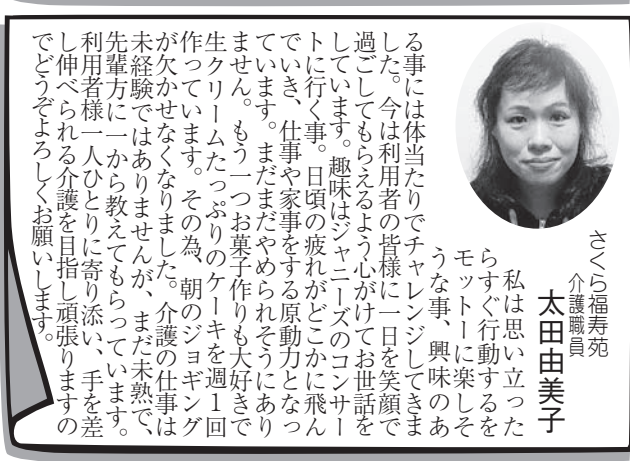 さくら福寿苑
介護職員
太田由美子
私は思い立った
らすぐ行動するを
モットーに楽しそ
うな事、興味のあ
る事には体当たりでチャレンジしてきま
した。今は利用者の皆様に一日を笑顔で
過ごしてもらえるよう心がけてお世話を
しています。趣味はジャニーズのコンサー
トに行く事。日頃の疲れがどこかに飛ん
でいき、仕事や家事をする原動力となっ
ています。まだまだやめられそうにあり
ません。もう一つお菓子作りも大好きで
生クリームたっぷりのケーキを週1回
作っています。その為、朝のジョギング
が欠かせなくなりました。介護の仕事は
未経験ではありませんが、まだ未熟で、
先輩方に一から教えてもらっています。
利用者様一人ひとりに寄り添い、手を差
し伸べられる介護を目指し頑張りますの
でどうぞよろしくお願いします。